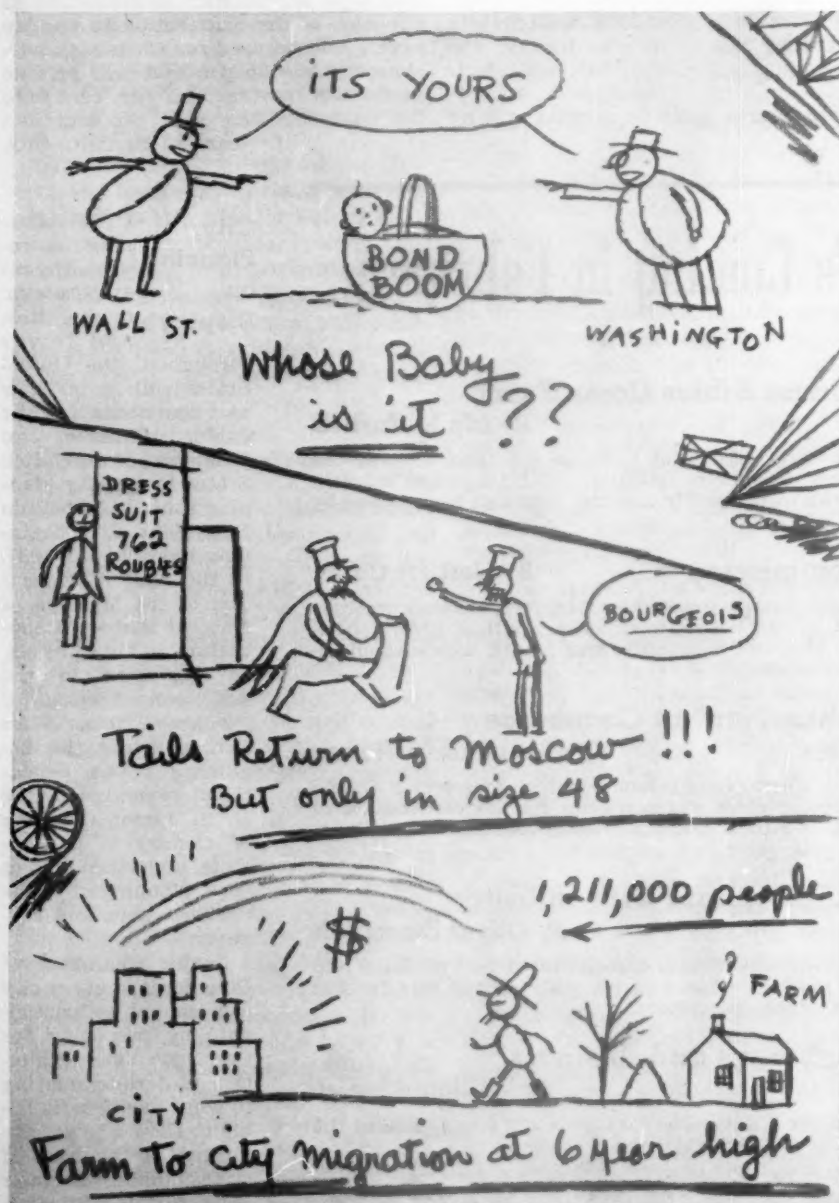 ITS YOURS
BOND
BOOM
WALL ST.
WASHINGTON
Whose Baby
is it ??
DRESS
SUIT
762
ROUBLES
BOURGEOIS
Tails Return to Moscow !!!
But only in size 48
1,211,000 people
$
FARM
CITY
Farm To City Migration at 6 year high